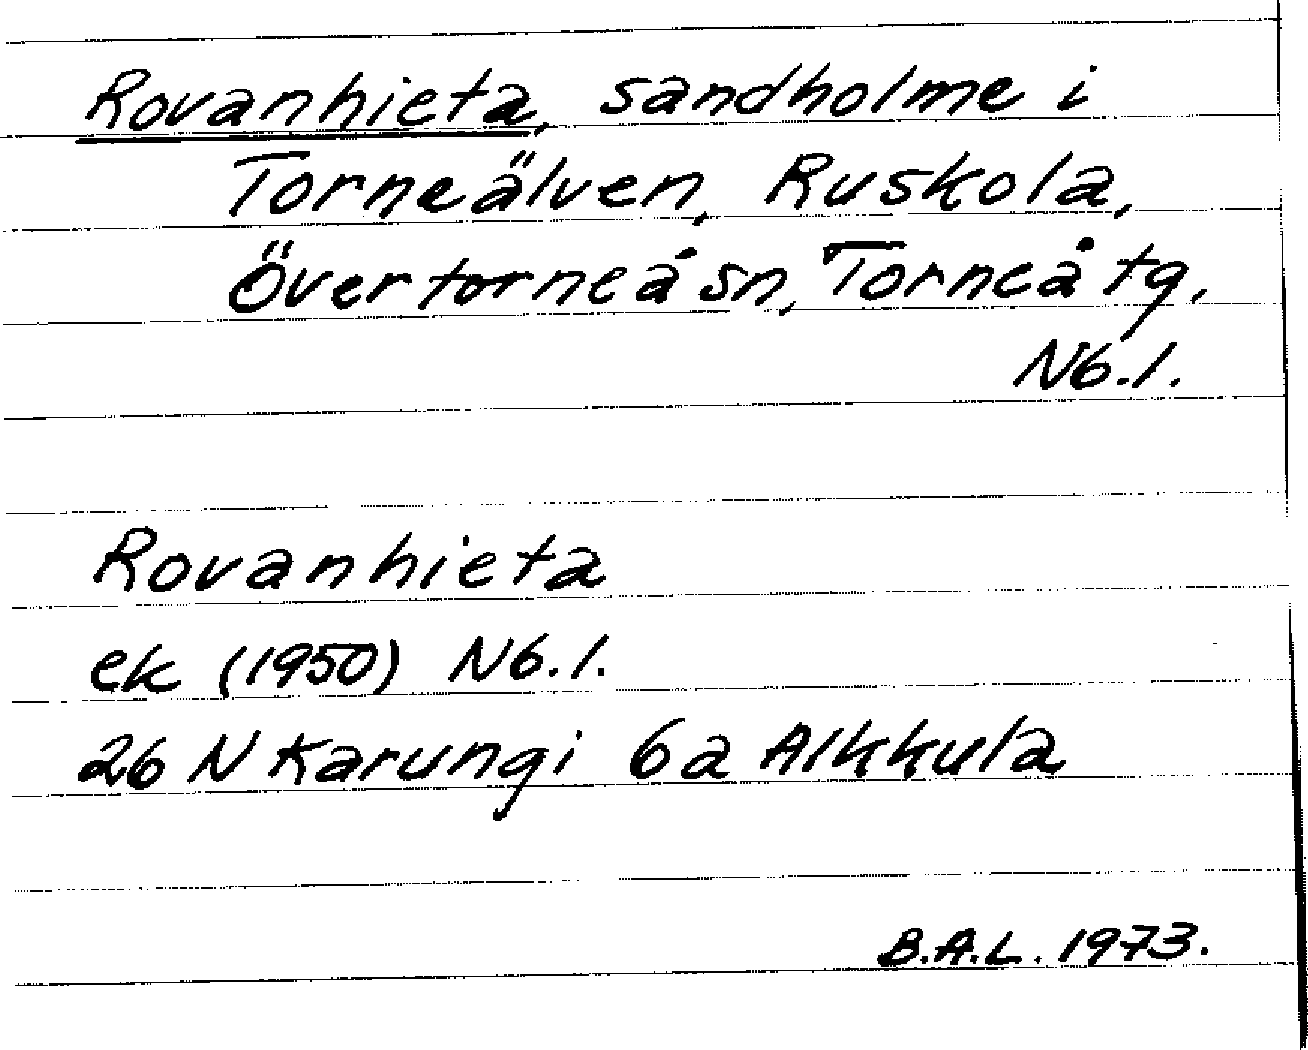 Rovanhieta, sandholme i
Torneälven, Ruskola,
Övertorneå sn, Torneå tg.
N6.1.
Rovanhieta
ek (1950) N6.1.
26 N Karungi 6a Alkkula
B.A.L. 1973.